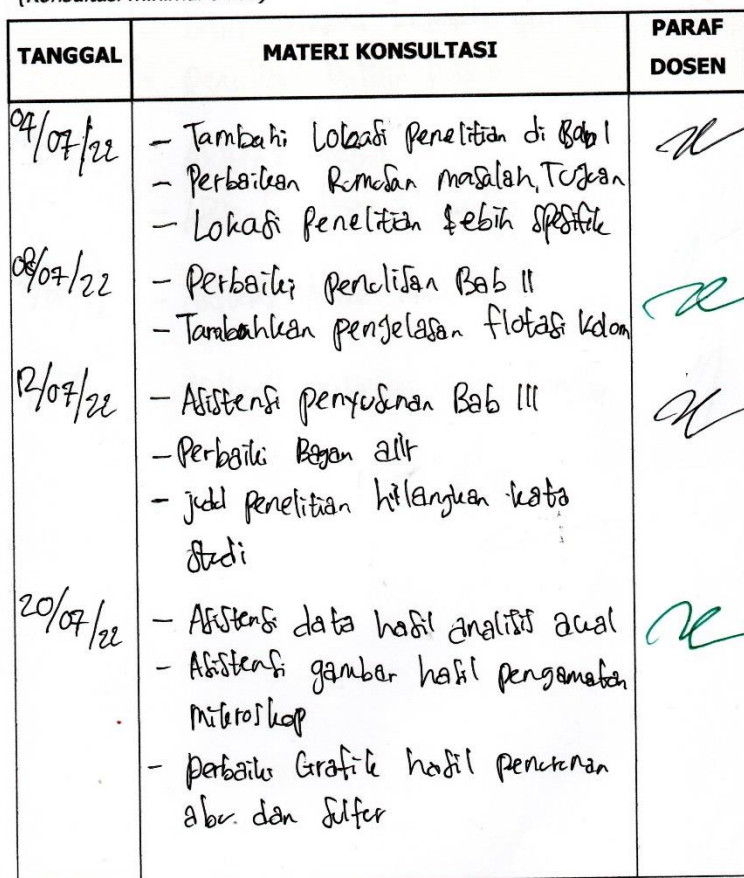 TANGGAL
MATERI KONSULTASI
PARAF
DOSEN
04/07/22
- Tambahi Lokasi Penelitian di Bab I
- Perbaikan Rumusan masalah, Tujuan
- Lokasi Penelitian Lebih Spesifik
08/07/22
- Perbaiki penulisan Bab II
- Tambahkan penjelasan flotasi kolom
12/07/22
- Asistensi penyusunan Bab III
- Perbaiki Bagan alir
- judul penelitian hilangkan kata
studi
20/07/22
- Asistensi data hasil analisis awal
- Asistensi gambar hasil pengamatan
mikroskop
- perbaiki Grafik hasil penurunan
abu dan Sulfur